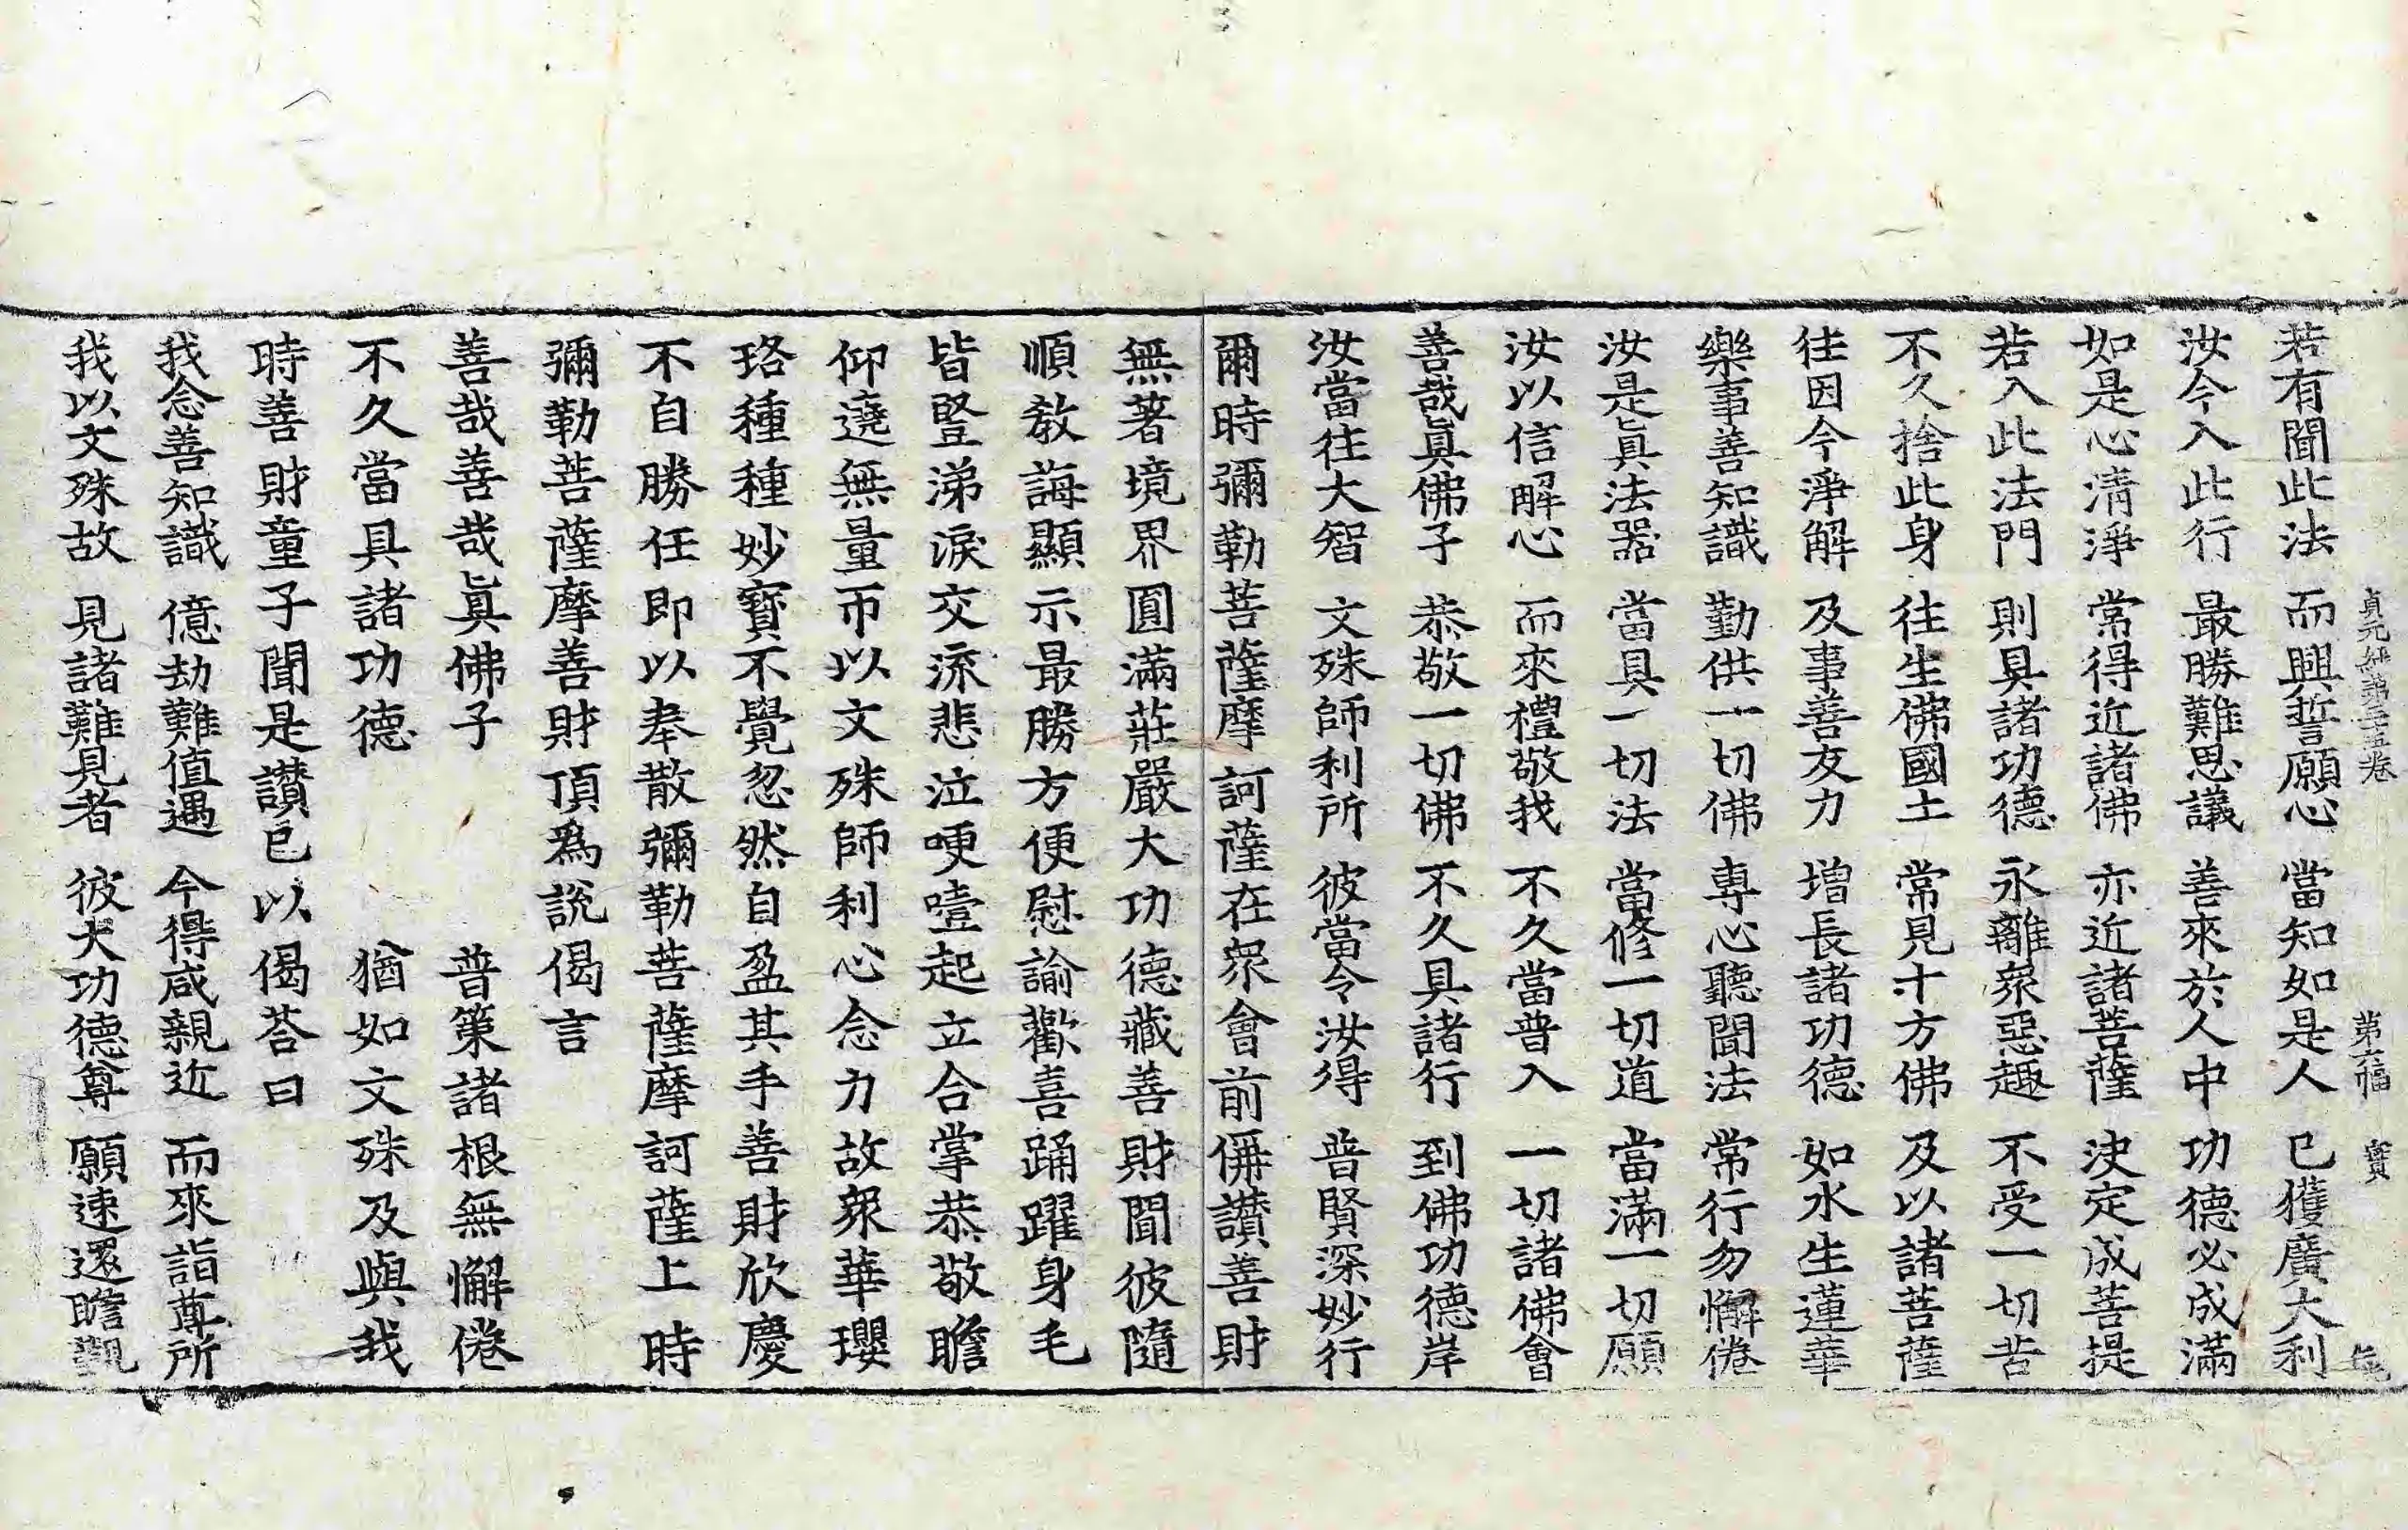 貞元經第三十五卷 第六福 寶
若有聞此法 而興誓願心 當知如是人 已獲廣大利
汝今入此行 最勝難思議 善來於人中 功德必成滿
如是心清淨 常得近諸佛 亦近諸菩薩 決定成菩提
若入此法門 則具諸功德 永離衆惡趣 不受一切苦
不久捨此身 往生佛國土 常見十方佛 及以諸菩薩
往因今淨解 及事善友力 增長諸功德 如水生蓮華
樂事善知識 勤供一切佛 專心聽聞法 常行勿懈倦
汝是眞法器 當具一切法 當修一切道 當滿一切願
汝以信解心 而來禮敬我 不久當普入 一切諸佛會
善哉眞佛子 恭敬一切佛 不久具諸行 到佛功德岸
汝當往大智 文殊師利所 彼當令汝得 普賢深妙行
爾時彌勒菩薩摩訶薩在衆會前俻讃善財
無著境界圓滿莊嚴大功德藏善財聞彼隨
順教誨顯示最勝方便慰諭歡喜踊躍身毛
皆豎涕淚交流悲泣哽噎起立合掌恭敬瞻
仰遶無量帀以文殊師利心念力故衆華瓔
珞種種妙寶不覺忽然自盈其手善財欣慶
不自勝任即以奉散彌勒菩薩摩訶薩上時
彌勒菩薩摩善財頂爲說偈言
善哉善哉眞佛子 普策諸根無懈倦
不久當具諸功德 猶如文殊及與我
時善財童子聞是讃已以偈荅曰
我念善知識 億劫難值遇 今得咸親近 而來詣尊所
我以文殊故 見諸難見者 彼大功德尊 願速還瞻覲